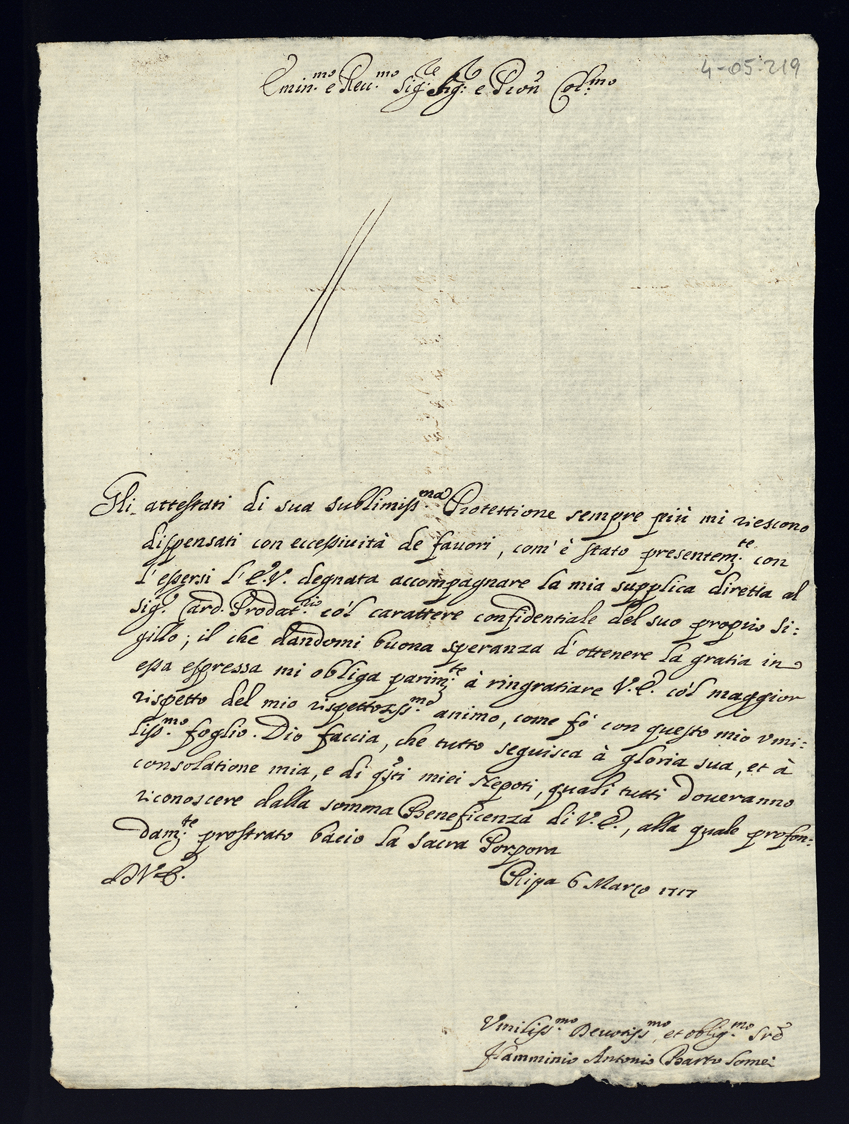 4-05:219
Emin.mo e Reu.mo Sig.re Sig.r e Pron Col.mo
Gli attestati di sua sublimiss.ma Protettione sempre più mi riescono
dispensati con eccessiuità de fauori, com'è stato presentem.te con
l'essersi l'E.V. degnata accompagnare la mia supplica diretta al
Sig.r Card. Prodat.rio co'l carattere confidentiale del suo proprio Si:
gillo; il che dandomi buona speranza d'ottenere la gratia in
essa espressa mi obliga parim.te à ringratiare V.E. co'l maggior
rispetto del mio rispettosiss.mo animo, come fò con questo mio vmi:
liss.mo foglio. Dio faccia, che tutto seguisca à gloria sua, et à
consolatione mia, e di qsti miei Nepoti, quali tutti doueranno
riconoscere dalla somma Beneficenza di V.E., alla quale profon:
dam.te prostrato bacio la Sacra Porpora
D V. E.
Ripa 6 Março 1717
Vmiliss.mo Deuotiss.mo, et oblig.mo Sre
Flamminio Antonio Bartolomei